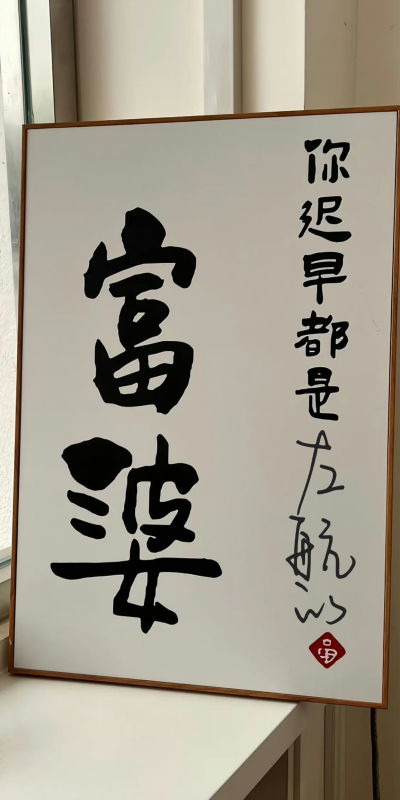 你迟早都是左航的
富婆